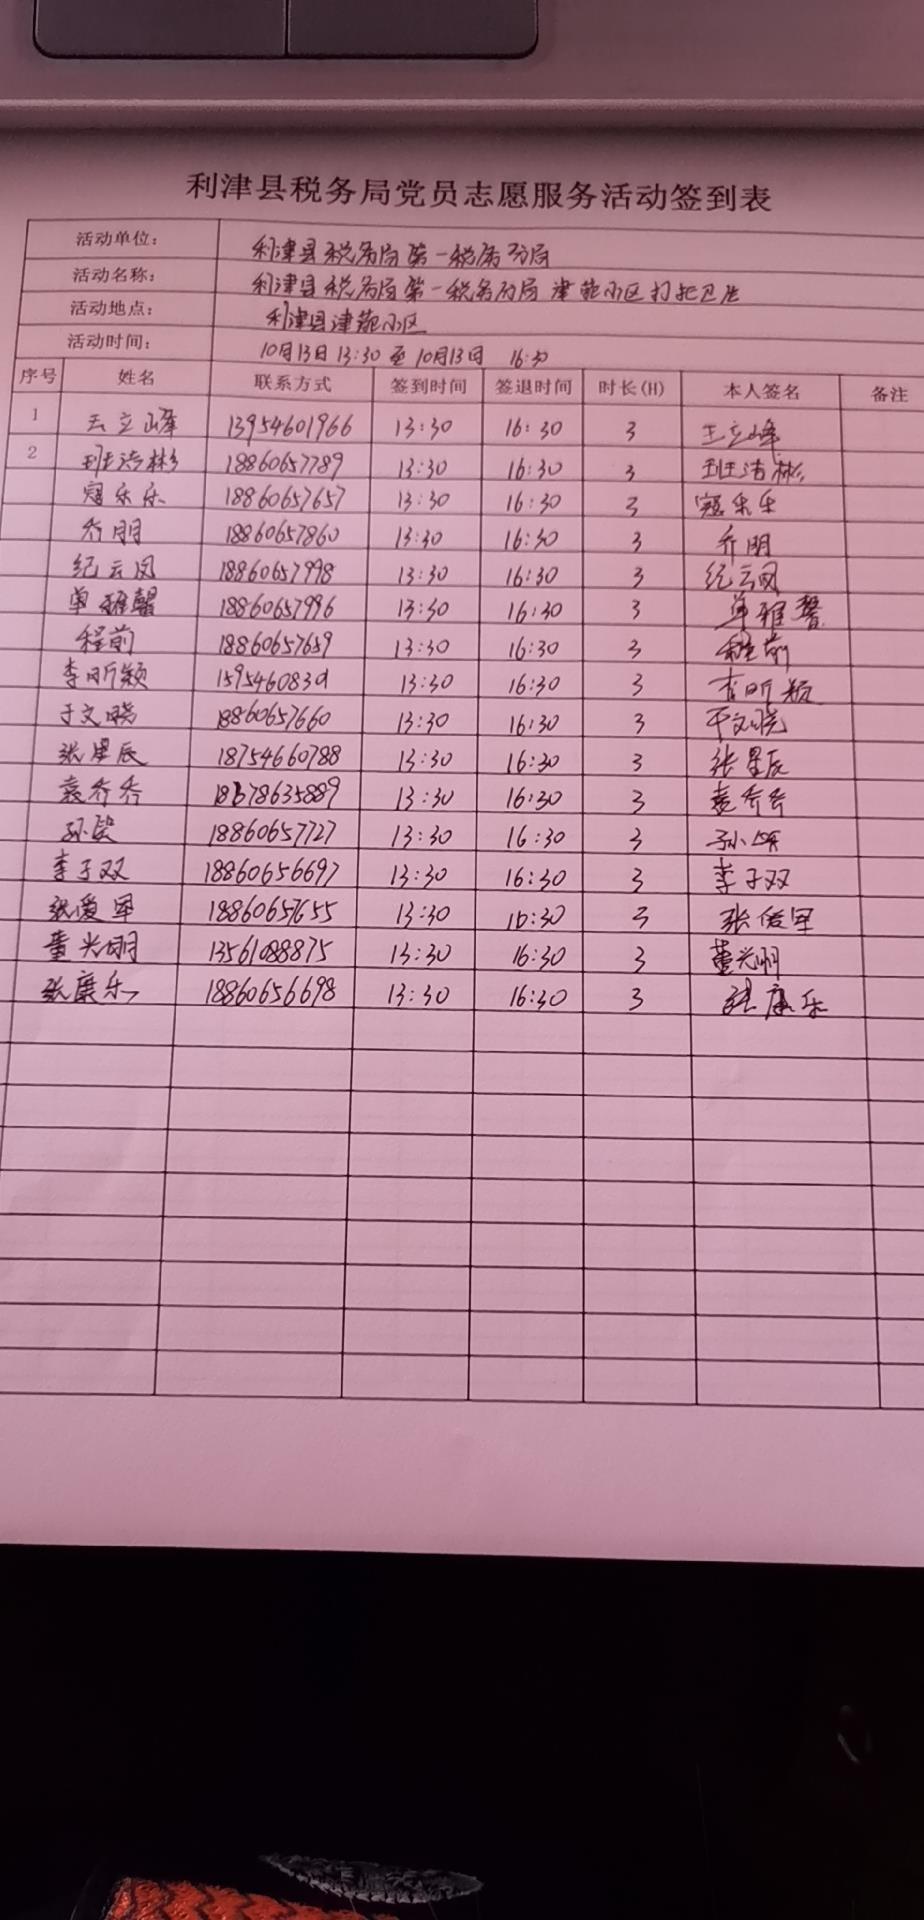 利津县税务局党员志愿服务活动签到表
活动单位： 利津县税务局第一税务分局
活动名称： 利津县税务局第一税务分局津苑小区打扫卫生
活动地点： 利津县津苑小区
活动时间： 10月13日 13:30 至 10月13日 16:30
序号 姓名 联系方式 签到时间 签退时间 时长(H) 本人签名 备注
1 王立峰 13954601966 13:30 16:30 3 王立峰
2 班洁彬 18860657789 13:30 16:30 3 班洁彬
寇乐乐 18860657657 13:30 16:30 3 寇乐乐
乔朋 18860657860 13:30 16:30 3 乔朋
纪云凤 18860657998 13:30 16:30 3 纪云凤
单雅馨 18860657996 13:30 16:30 3 单雅馨
程前 18860657659 13:30 16:30 3 程前
李昕颖 13:30 16:30 3 李昕颖
于文晓 18860657660 13:30 16:30 3 于文晓
张星辰 18754660788 13:30 16:30 3 张星辰
袁乔乔 18678635889 13:30 16:30 3 袁乔乔
孙 18860657727 13:30 16:30 3 孙
李子双 18860656697 13:30 16:30 3 李子双
张俊军 18860657655 13:30 16:30 3 张俊军
董光明 13561088875 13:30 16:30 3 董光明
张康乐 18860656698 13:30 16:30 3 张康乐